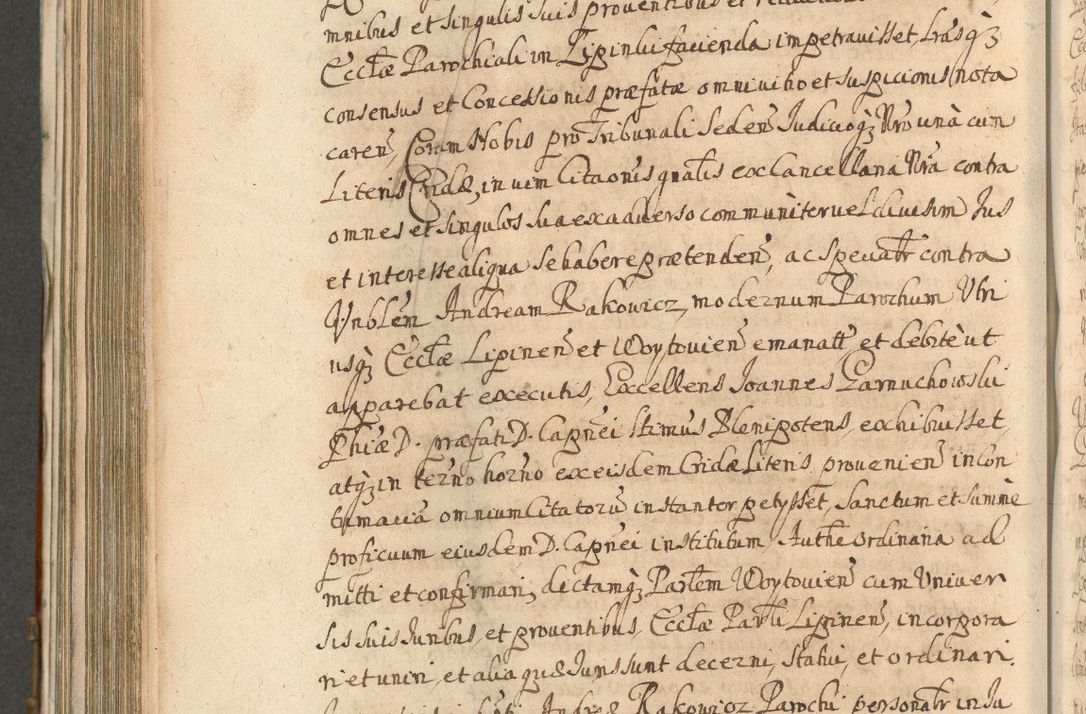 mnibus et singulis suis proventibus et
Ecclæ Parochiali in Lipinki facienda impetravisset, Lrasqz
consensus et Concessionis præfatæ omni vitio et suspicionis nota
caren, Coram Nobis pro Tribunali Seden Judicioqz Nro unà cum
Literis Cridæ, in vim Citaonis gnalis ex Cancellaria Nra contra
omnes et singulos sua ex adverso communiter vel divisim Jus
et interesse aliqua se habere prætenden, ac speciatr contra
Vnblem Andream Rakowicz, modernum Parochum Utri
usqz Ecclæ Lipinen et Woytovien emanatt et debitè ut
apparebat executis, Excellens Joannes Parnuchowski
Phiæ D. præfati D. Capnei Ittimus Plenipotens, exhibuisset,
atqz in termo horno ex eisdem Cridæ Literis provenien in con
tumaciã omnium Citatorũ instanter petysset, Sanctum et summè
proficuum eiusdem D. Capnei institutum, Authe Ordinaria ad
mitti et confirmari, dictamqz Parlem Woytovien cum Univer
sis suis Juribus, et proventibus, Ecclæ Parli Lipinen, incorpora
ri et uniri, et alia quæ Juris sunt decerni, statui, et ordinari.
Andreæ Rakowicz Parochi personaltr in Ju